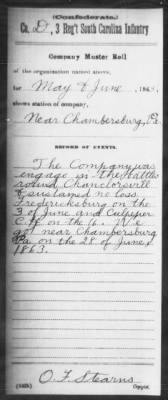 (Confederate.)
Co. D, 3 Reg't South Carolina Infantry
Company Muster Roll
of the organization named above,
for May & June, 186
shows station of company,
Near Chambersburg, Pa
RECORD OF EVENTS.
The Company was
engage in the Battles
round Chancelorsvill
& sustained no loss.
Fredericksburg on the
3 of June and Culpeper
C.H. on the 6. We
got near Chambersburg
Pa on the 28 of June
1863.
O. F. Stearns
Copyist.